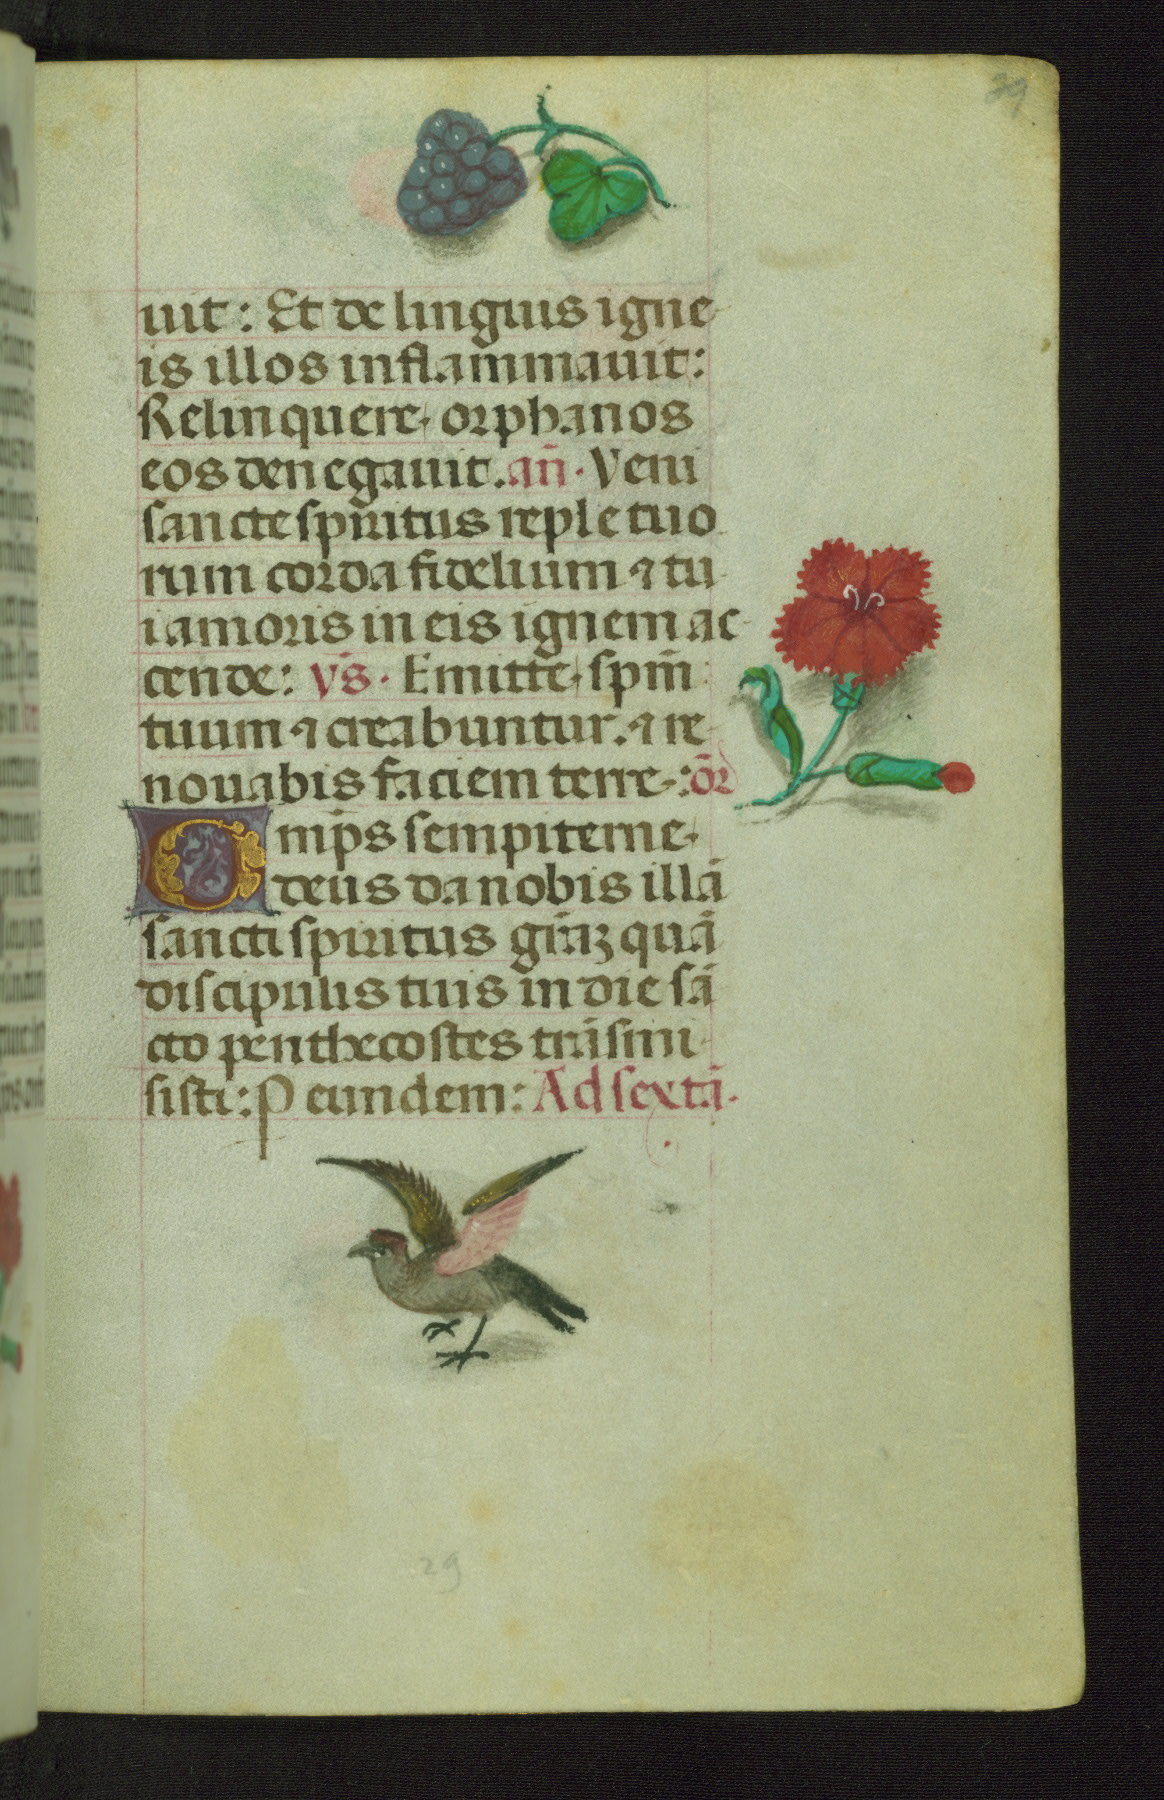 29
uit: Et de linguis igne
is illos inflammauit:
Relinquere orphanos
eos denegauit. an̄. Veni
sancte spiritus reple tuo
rum corda fidelium ⁊ tu
i amoris in eis ignem ac
cende: vs̄. Emitte spm̄
tuum ⁊ creabuntur. ⁊ re
nouabis faciem terre: or̄
Omp̄s sempiterne
deus da nobis illā
sancti spiritus grāꝫ quā
discipulis tuis in die sā
cto penthecostes trāsmi
sisti: P eundem: Ad sextā.
29